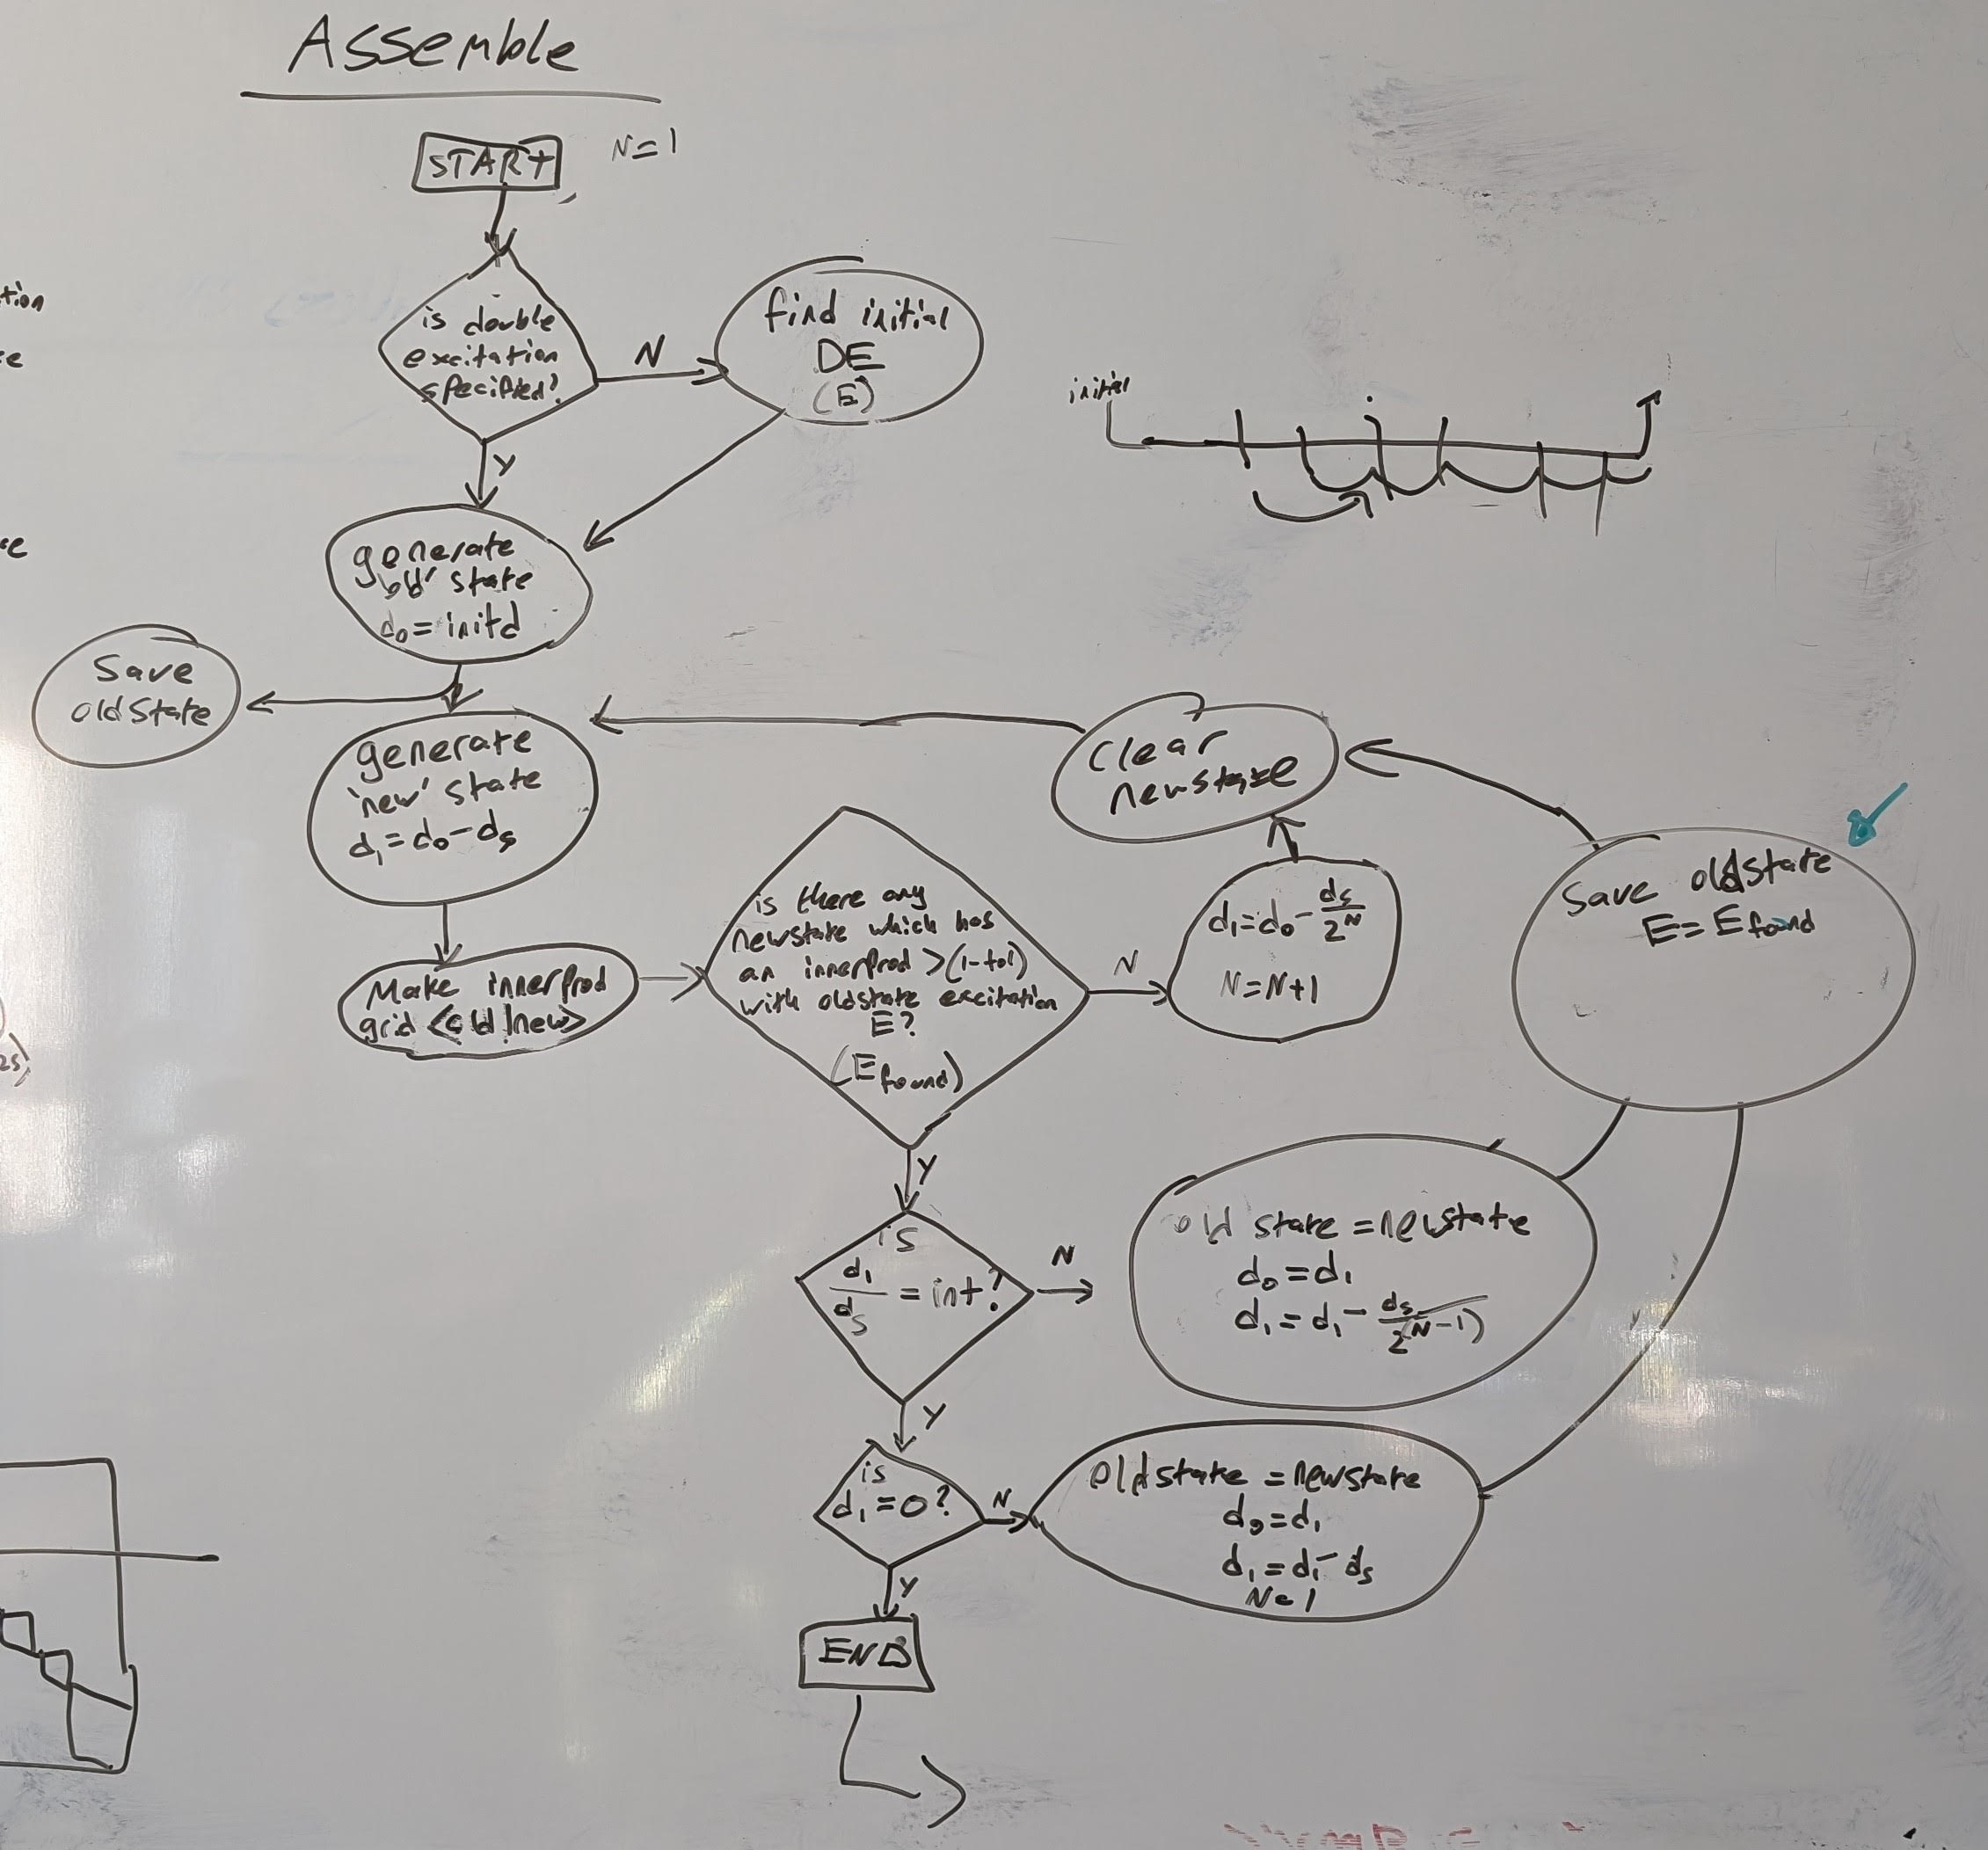 Assemble
START
N=1
is double
excitation
specified?
N
Y
find initial
DE
(E)
initial
generate
'old' state
d₀ = initd
Save
oldState
generate
'new' state
d₁ = d₀ - dₛ
Make innerprod
grid <old|new>
is there any
newstate which has
an innerprod > (1-tol)
with oldstate excitation
E?
(E found)
N
Y
d₁ = d₀ - dₛ/2^N
N = N+1
Clear
newstate
Save oldstate
E = E found
is
d₁/dₛ = int?
N
Y
old state = newstate
d₀ = d₁
d₁ = d₁ - dₛ/2^(N-1)
is
d₁ = 0?
N
Y
oldstate = newstate
d₀ = d₁
d₁ = d₁ - dₛ
N = 1
END